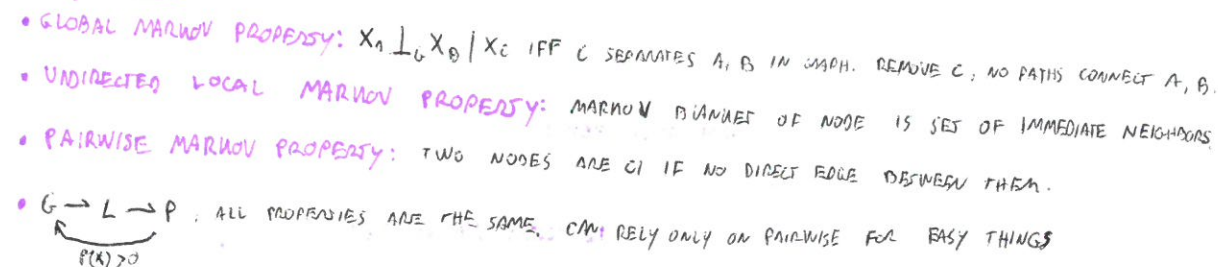 • GLOBAL MARKOV PROPERTY: X_A ⊥_G X_B | X_C IFF C SEPARATES A, B IN GRAPH. REMOVE C, NO PATHS CONNECT A, B.
• UNDIRECTED LOCAL MARKOV PROPERTY: MARKOV BLANKET OF NODE IS SET OF IMMEDIATE NEIGHBORS
• PAIRWISE MARKOV PROPERTY: TWO NODES ARE CI IF NO DIRECT EDGE BETWEEN THEM.
• G → L → P. ALL PROPERTIES ARE THE SAME. CAN RELY ONLY ON PAIRWISE FOR EASY THINGS
P(X)>0